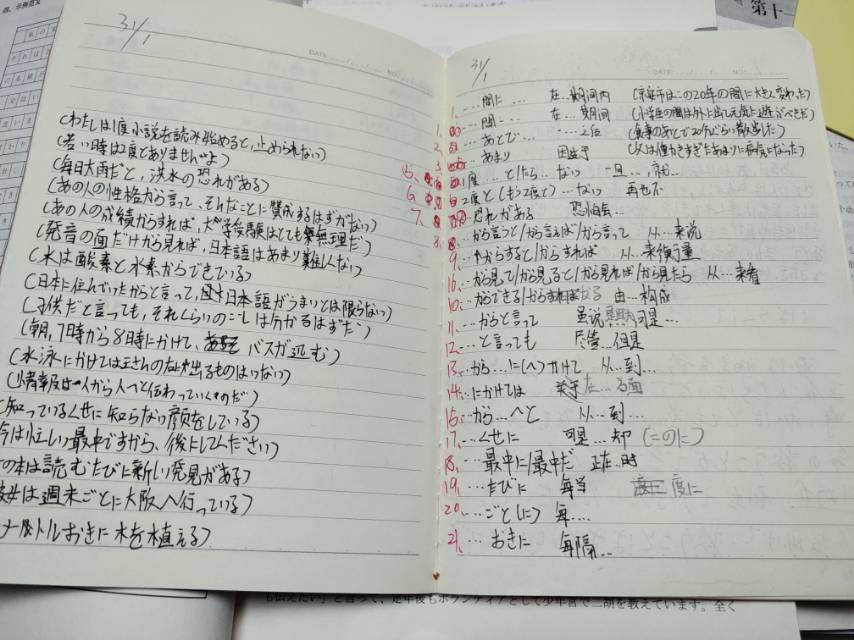 31/1
DATE
(わたしは1度小説を読み始めると,止められない)
(若い時は2度とありませんよ)
(毎日大雨だと,洪水の恐れがある)
(あの人の性格から言って,そんなことに賛成するはずがない)
(あの人の成績からすれば,大学受験はとても無理だ)
(発音の面だけから見れば,日本語はあまり難しくない)
(水は酸素と水素からできている)
(日本に住んでいたからと言って,日本語がうまいとは限らない)
(子供だと言っても,それくらいのことは分かるはずだ)
(朝,7時から8時にかけて,バスが込む)
(水泳にかけては王さんの右に出るものはいない)
(情報は人から人へと伝わっていくものだ)
(知っているくせに知らない顔をしている)
今は忙しい最中ですから、後にしてください)
の本は読むたびに新しい発見がある)
彼女は週末ごとに大阪へ行っている)
メートルおきに木を植える)
31/1
DATE NO.
1. …間に… 在…期间内 (京安市はこの20年の間に大きく変わった)
2. …間… 在…期间 (小学生の間は外に出て元気に遊ぶべきだ)
3. …あとで… …之后 (食事のあとで20分ぐらい散歩した)
…あまり 因过于 (父は働きすぎたあまりに病気になった)
5. 1度…と/たら…ない 一旦…,就…
6. 2度と(もう2度と)…ない 再也不
7. 恐れがある 恐怕会…
8. …から言うと/から言えば/から言って 从…来说
9. …からすると/からすれば 从…来衡量
10. …から見て/から見ると/から見れば/から見たら 从…来看
10. …からできる/からなる 由…构成
11. …からと言って 虽说…可是…
12. …と言っても 尽管…但是
13. …から…に(へ)かけて 从…到…
14. …にかけては 在…方面
15. …から…へと 从…到…
17. …くせに 可是…却 (=のに)
18. …最中に/最中だ 正在…时
19. …たびに 每当 度に
20. …ごと(に) 每…
21. …おきに 每隔…
も伝えたい」と言って、定年後もボランティアとして少年宮で二胡を教えています。全く